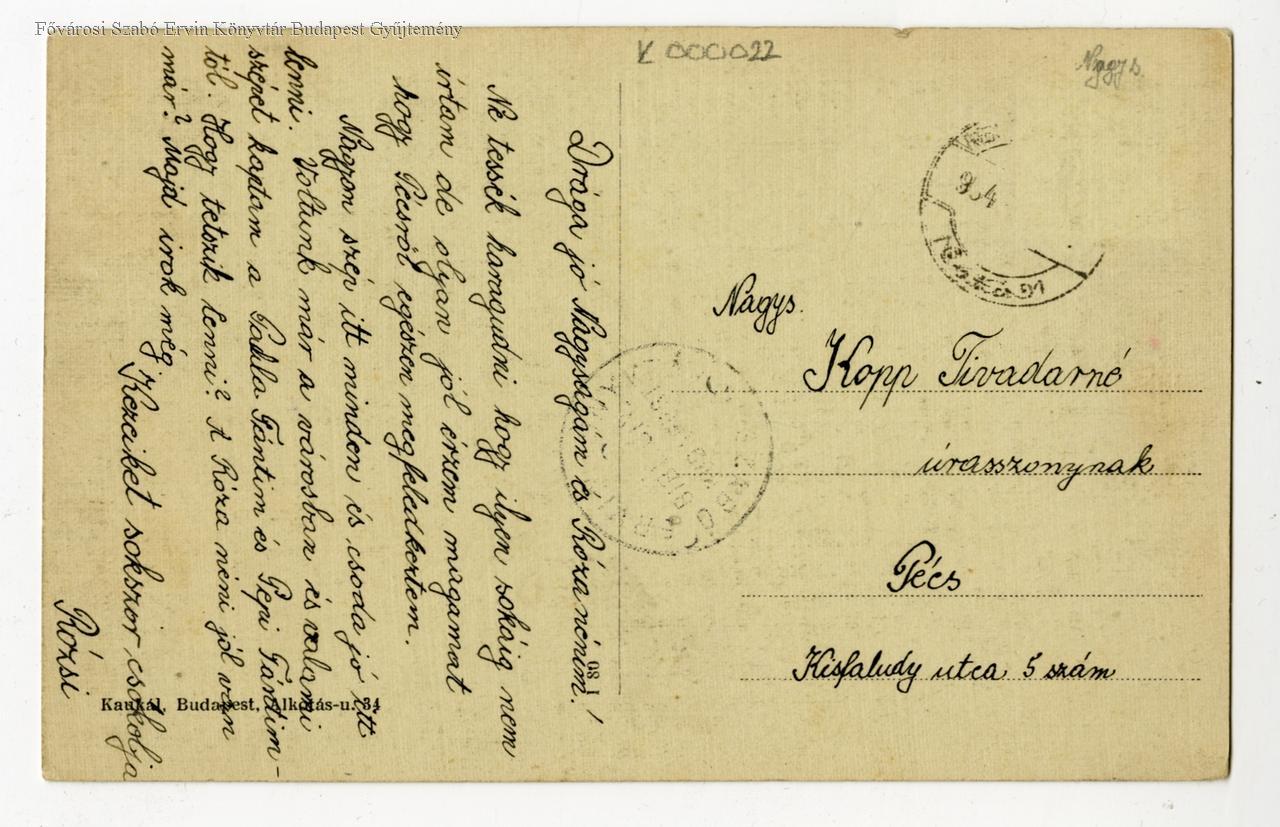 Fővárosi Szabó Ervin Könyvtár Budapest Gyűjtemény
K 000022
Nagys.
Drága jó Nagyságám és Róza néním!
Ne tessék haragudni hogy ilyen sokáig nem
írtam de olyan jól érzem magamat
hogy Pécsről egészen megfeledkeztem.
Nagyon szép itt minden és csoda jó itt
lenni. Voltunk már a városban és valami
szépet kaptam a Tántim és Pepi Tántim-
tól. Hogy tetszik lenni? A Róza neni jól van
már? Majd irok még
Kezeiket sokszor csokolja
Rózsi
Kaukál, Budapest, Alkotás-u. 34
Nagys.
Kopp Tivadarné
úrasszonynak
Pécs
Kisfaludy utca 5 szám